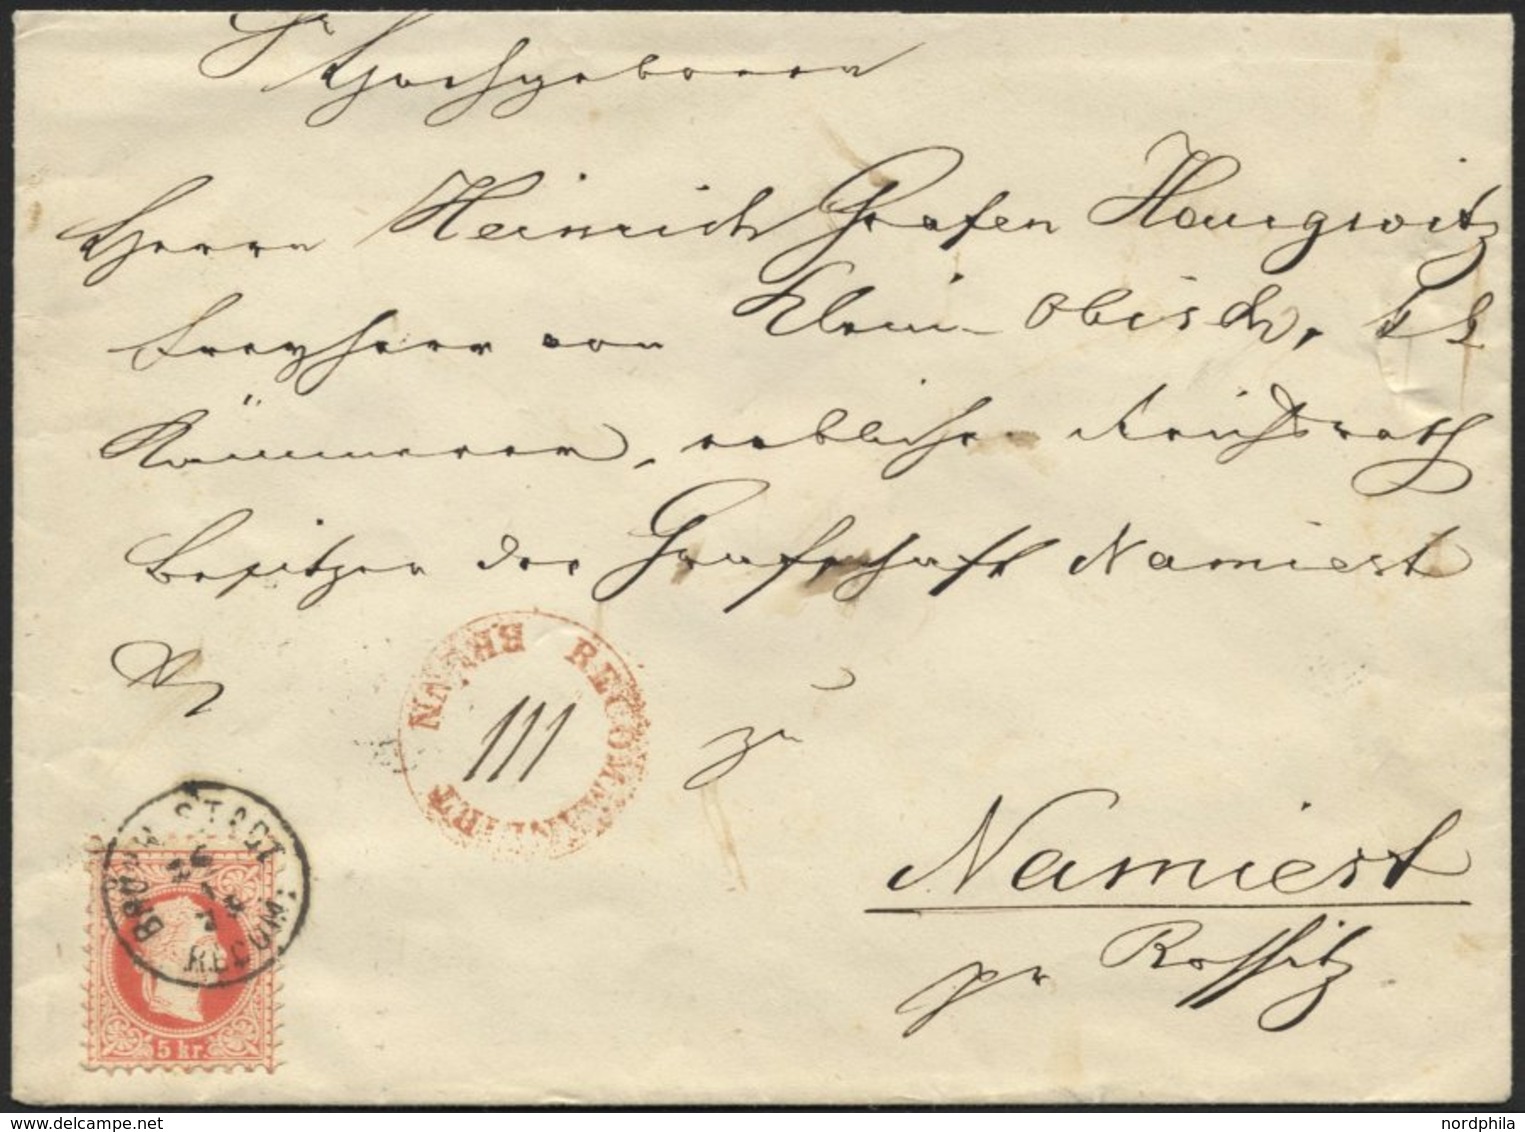 Sr Hochgeboren
Herrn Heinrich Grafen Haugwitz
Freyherr von Klein-Obisch, k k
Kämmerer, erbliche Reichsrath
Besitzer der Grafschaft Namiest
zu
Namiest
pr Rossitz
RECOMMANDIRT BRÜNN
III
BRÜNN STADT
RECOM
5 kr
delcampe.net
nordphila